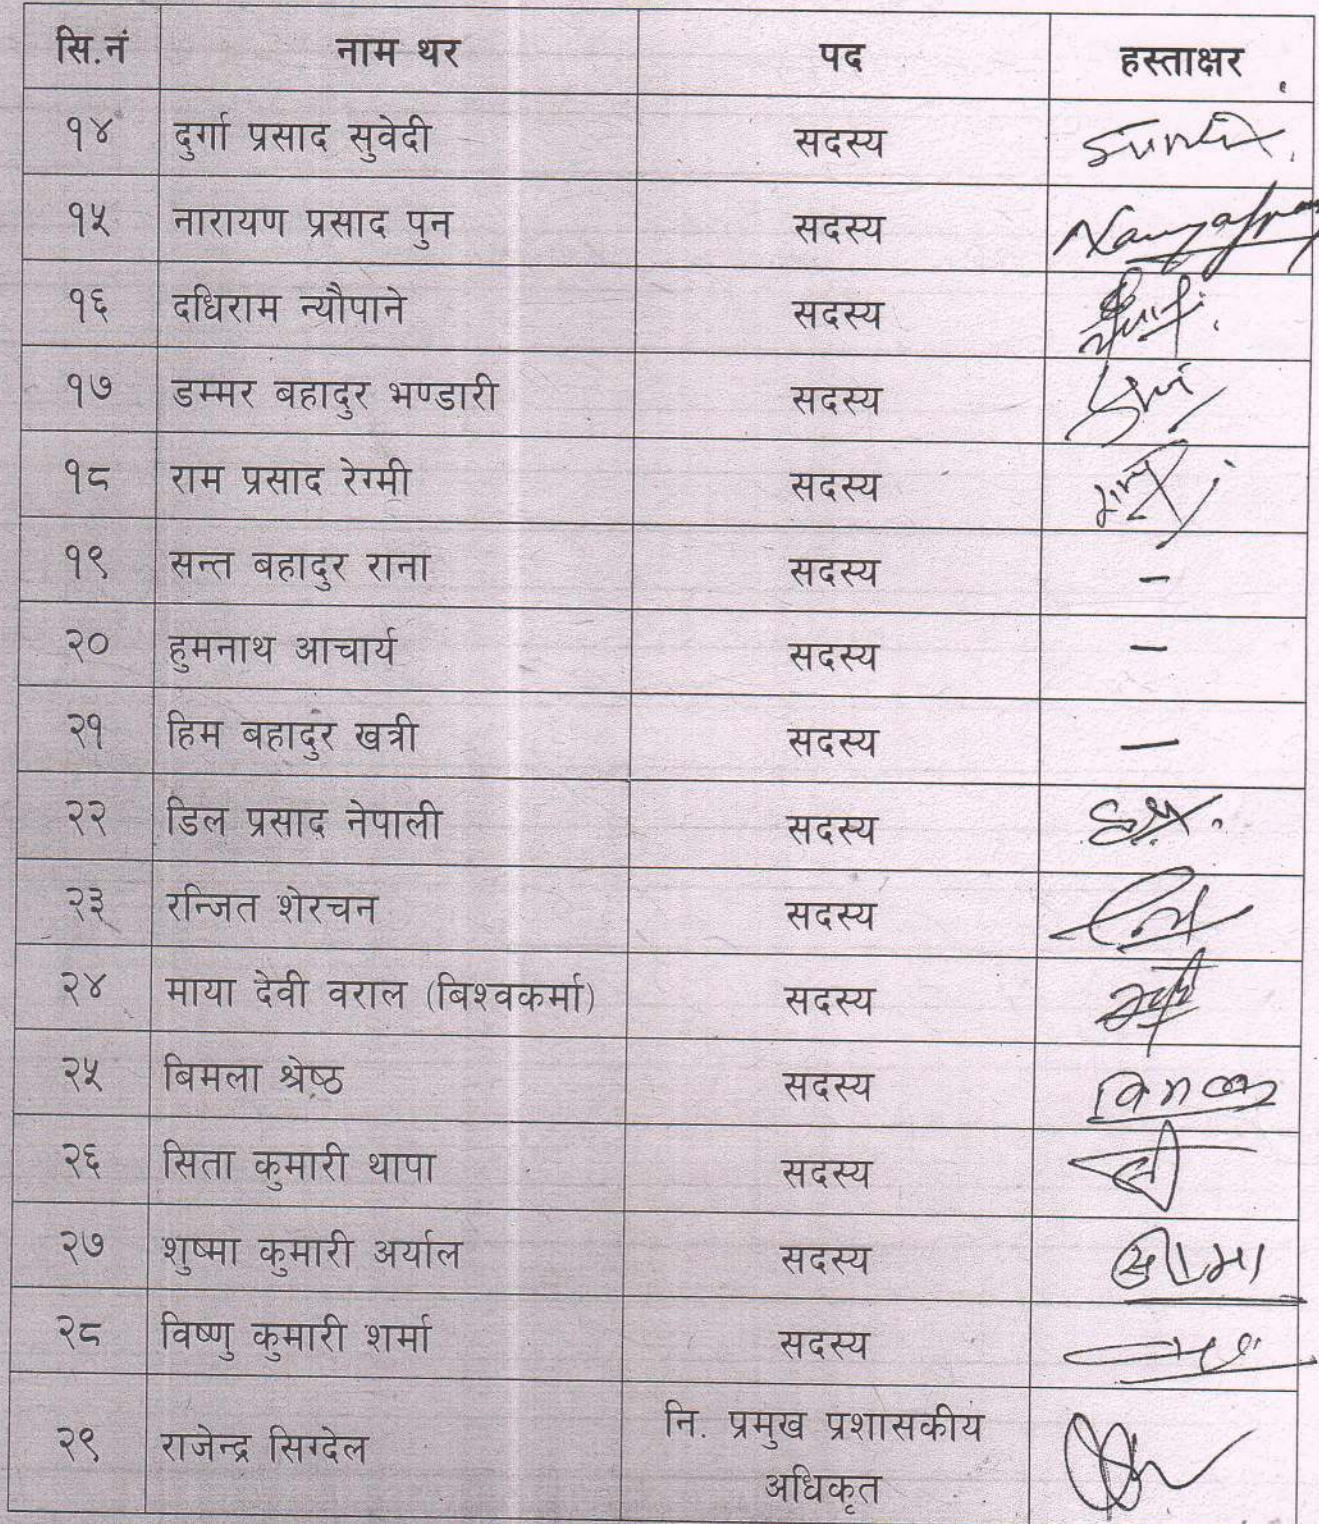 सि.नं नाम थर पद हस्ताक्षर
१४ दुर्गा प्रसाद सुवेदी सदस्य
१५ नारायण प्रसाद पुन सदस्य
१६ दधिराम न्यौपाने सदस्य
१७ डम्मर बहादुर भण्डारी सदस्य
१८ राम प्रसाद रेग्मी सदस्य
१९ सन्त बहादुर राना सदस्य –
२० हुमनाथ आचार्य सदस्य –
२१ हिम बहादुर खत्री सदस्य –
२२ डिल प्रसाद नेपाली सदस्य
२३ रन्जित शेरचन सदस्य
२४ माया देवी वराल (बिश्वकर्मा) सदस्य
२५ बिमला श्रेष्ठ सदस्य
२६ सिता कुमारी थापा सदस्य
२७ शुष्मा कुमारी अर्याल सदस्य
२८ विष्णु कुमारी शर्मा सदस्य
२९ राजेन्द्र सिग्देल नि. प्रमुख प्रशासकीय
अधिकृत